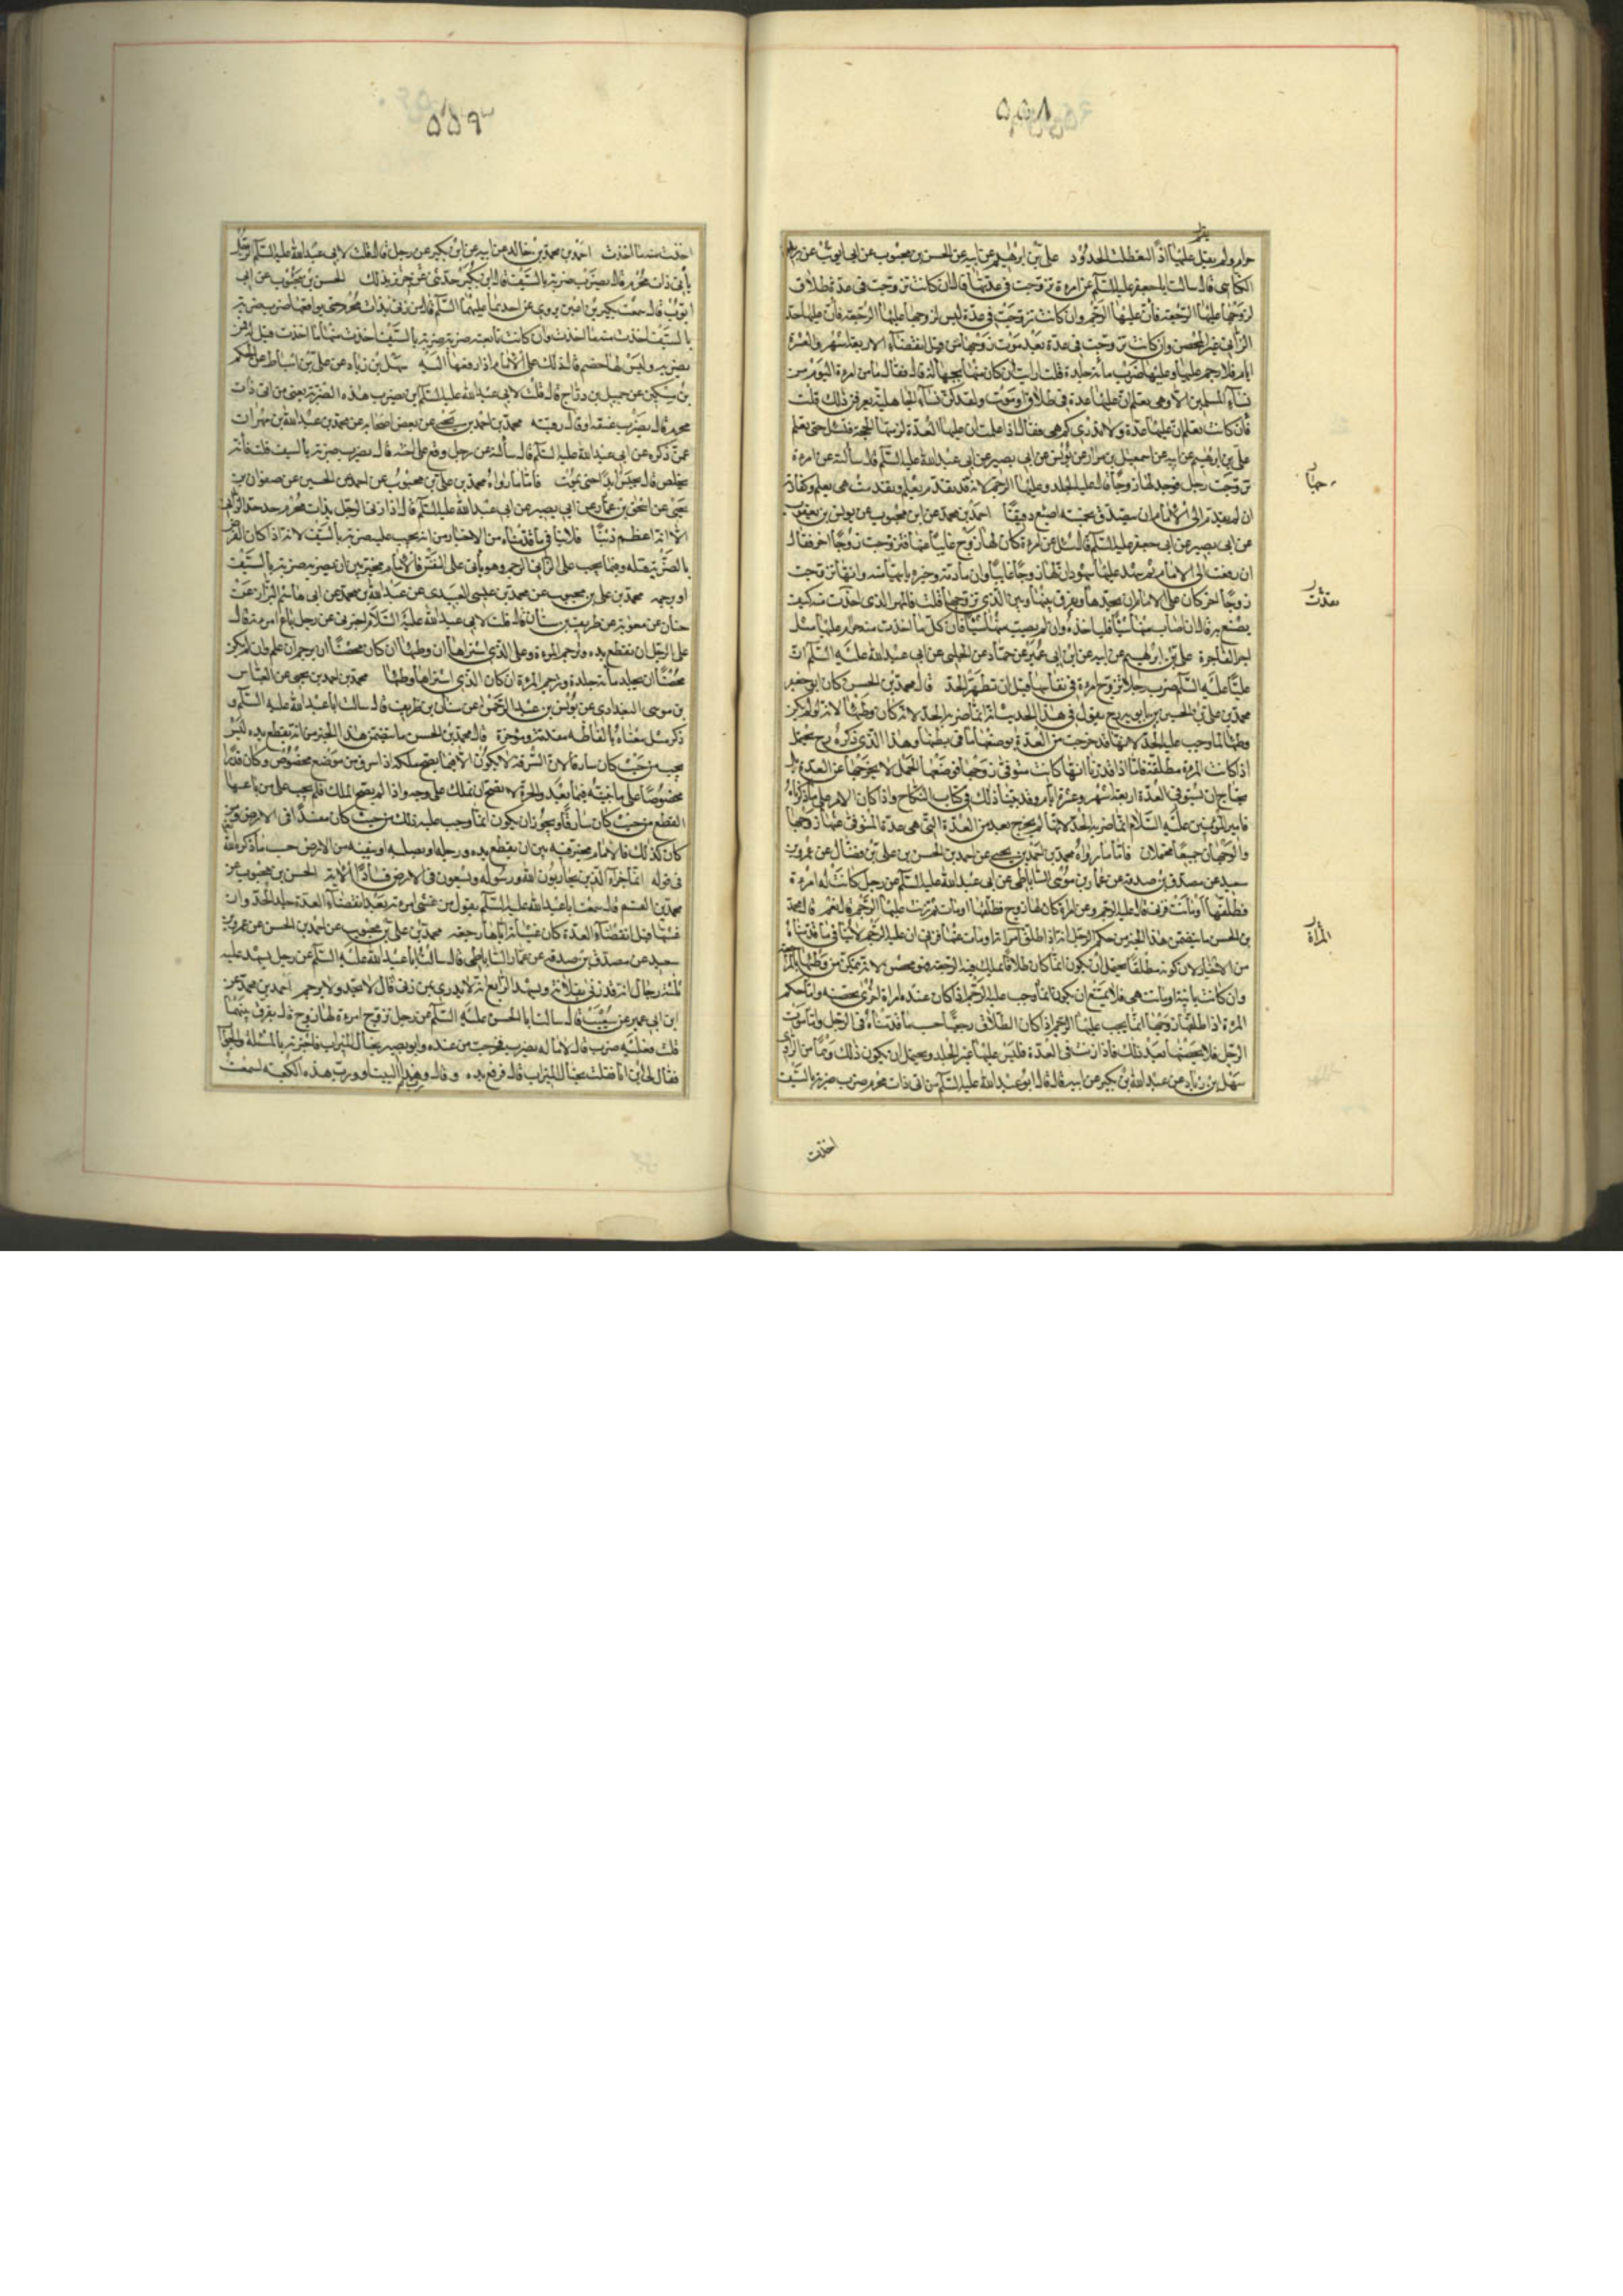 ۵۵۸
حرام ولم يقبل عليها اذًا لتعطلت الحدود علي بن ابرهيم عن ابيه عن الحسن بن محبوب عن ابي ايوب عن يزيد
الكناسي قال سالت ابا جعفر عليه السلم عن امرءة تزوجت في عدتها قال ان كانت تزوجت في عدة طلاق
لزوجها عليها الرجعة فان عليها الرجم وان كانت تزوجت في عدة ليس لزوجها عليها الرجعة فان عليها حد
الزاني غير المحصن وان كانت تزوجت في عدة بعد موت زوجها من قبل انقضاء الاربعة اشهر والعشرة
ايام فلا رجم عليها وعليها ضرب مائة جلدة قلت ارايت ان كان منها بجهالة قال فقال ما من امرءة اليوم من
نساء المسلمين الا وهي تعلم ان عليها عدة في طلاق او موت ولقد كن نساء الجاهلية يعرفن ذلك قلت
فان كانت تعلم ان عليها عدة ولا تدري كم هي فقال اذا علمت ان عليها العدة لزمتها الحجة فتسئل حتى تعلم
علي بن ابرهيم عن ابيه عن اسمعيل بن مرار عن يونس عن ابي بصير عن ابي عبد الله عليه السلم قال سالته عن امرءة
تزوجت رجل فوجد لها زوجًا قال عليه الجلد وعليها الرجم لانه قد تقدم بعلم وتقدمت هي بعلم وكفارته
ان لم يقدم الى الامام ان يتصدق بخمسة اصيع دقيقًا احمد بن محمد عن ابن محبوب عن يونس بن يعقوب
عن ابي بصير عن ابي جعفر عليه السلم قال سئل عن امرءة كان لها زوج غايبًا عنها فتزوجت زوجًا اخر فقال
ان رفعت الى الامام ثم شهد عليها شهود ان لها زوجًا غايبًا وان مادته وخبره ياتيها منه وانها تزوجت
زوجًا اخر كان على الامام ان يحدها ويفرق بينها وبين الذي تزوجها قلت فالمهر الذي اخذت منه كيف
يصنع به قال ان اصاب منها شيئًا فلياخذه وان لم يصب منها شيئًا فان كل ما اخذت منه حرام عليها مثل
اجر الفاجرة علي بن ابرهيم عن ابيه عن ابن ابي عمير عن حماد عن الحلبي عن ابي عبد الله عليه السلم ان
عليًا عليه السلم ضرب رجلا تزوج امرءة في نفاسها قبل ان تطهر الحد قال محمد بن الحسن كان ابو جعفر
محمد بن علي بن الحسين بن بابويه رح يقول في هذا الحديث انه انما ضربه الحد لانه كان وطئها لانه لو لم يكن
وطئها لما وجب عليه الحد لانها قد خرجت من العدة بوضعها ما في بطنها وهذا الذي ذكره رح يحتمل
اذا كانت المرءة مطلقة فاما اذا قدرنا انها كانت متوفى زوجها فوضعها الحمل لا يخرجها عن العدة بل
يحتاج ان تستوفي العدة اربعة اشهر وعشرة ايام وقد بينا ذلك في كتاب النكاح واذا كان الامر على ما ذكرناه
فامير المؤمنين عليه السلام انما ضربه الحد لانها لم تخرج بعد من العدة التي هي عدة المتوفى عنها زوجها
والوجهان جميعًا محتملان فاما ما رواه محمد بن احمد بن يحيى عن احمد بن الحسن بن علي بن فضال عن عمرو بن
سعيد عن مصدق بن صدقة عن عمار بن موسى الساباطي عن ابي عبد الله عليه السلم عن رجل كانت له امرءة
فطلقها او ماتت فزنى قال عليه الرجم وعن امرءة كان لها زوج فطلقها او مات ثم زنت عليها الرجم قال نعم قال محمد
بن الحسن ما يتضمن هذا الخبر من حكم الرجل انه اذا طلق امراته او ماتت عنها فزنى ان عليه الرجم لا ينافي ما قدمناه
من الاخبار لان كونه مطلقًا يحتمل ان يكون انما كان طلاقًا يملك فيه الرجعة فهو محصن لانه يتمكن من وطئها بالمراجعة
وان كانت باينة او ماتت هي فلا يمتنع ان يكون انما وجب عليه الرجم اذا كان عنده امراة اخرى تحصنه واما حكم
المرءة اذا طلقها زوجها انما يجب عليها الرجم اذا كان الطلاق رجعيًا حسب ما قدمناه في الرجل واما موت
الرجل فلا يحصنها بعد ذلك فاذا زنت في العدة فليس عليها غير الجلد ويحتمل ان يكون ذلك وهمًا من الراوي
سهل بن زياد عن عبد الله بن بكير عن ابيه قال قال ابو عبد الله عليه السلم من اتى ذات محرم ضرب ضربة بالسيف
اخذت
المراة
۵۵۹
اخذت منه ما اخذت احمد بن محمد بن خالد عن ابيه عن ابن بكير عن رجل قال قلت لابي عبد الله عليه السلم الرجل
ياتي ذات محرم قال يضرب ضربة بالسيف قال ابن بكير حدثني حريز عن بكير بذلك الحسن بن محبوب عن ابي
ايوب قال سمعت بكير بن اعين يروي عن احدهما عليهما السلم قال من زنى بذات محرم حتى يواقعها ضرب ضربة
بالسيف اخذت منه ما اخذت وان كانت تابعته ضربت ضربة بالسيف اخذت منها ما اخذت قيل له فمن
يضربهما وليس لهما خصم قال ذلك على الامام اذا رفعا اليه سهل بن زياد عن علي بن اسباط عن الحكم
بن مسكين عن جميل بن دراج قال قلت لابي عبد الله عليه السلم اين يضرب هذه الضربة يعني من اتى ذات
محرم قال يضرب عنقه او قال رقبته محمد بن احمد بن يحيى عن بعض اصحابه عن محمد بن عبد الله بن مهران
عمن ذكره عن ابي عبد الله عليه السلم قال سالته عن رجل وقع على اخته قال يضرب ضربة بالسيف قلت فانه
يخلص قال يحبس ابدًا حتى يموت فاما ما رواه محمد بن علي بن محبوب عن احمد بن الحسين عن صفوان بن
يحيى عن اسحق بن عمار عن ابي بصير عن ابي عبد الله عليه السلم قال اذا زنى الرجل بذات محرم حد حد الزاني
الا انه اعظم ذنبًا فلا ينافي ما قدمناه من الاخبار من انه يجب عليه ضربة بالسيف لانه اذا كان الغرض
بالضربة قتله وفيما يجب على الزاني الرجم وهو ياتي على النفس فالامام مخير بين ان يضربه ضربة بالسيف
او يرجمه محمد بن علي بن محبوب عن محمد بن عيسى العبيدي عن عبد الله بن محمد عن ابي هاشم البزاز عن
حنان عن معوية عن طريف بن سنان قال قلت لابي عبد الله عليه السلام اخبرني عن رجل باع امرءته قال
على الرجل ان تقطع يده وترجم المرءة وعلى الذي اشتراها ان وطئها ان كان محصنًا ان يرجم ان علم وان لم يكن
محصنًا ان يجلد مائة جلدة وترجم المرءة ان كان الذي اشتراها وطئها محمد بن احمد بن يحيى عن العباس
بن موسى البغدادي عن يونس بن عبد الرحمن عن سنان بن طريف قال سالت ابا عبد الله عليه السلم و
ذكر مثل معناه بالفاظه مقدمة وموخرة قال محمد بن الحسن ما يتضمن هذا الخبر من انه يقطع يده ليس
يجب من حيث كان سارقًا لان السرقة لا يكون الا فيما يصح ملكه اذا سرق من موضع مخصوص وكان قدرًا
مخصوصًا على ما نبينه فيما بعد والحرة لا يصح ان تملك على وجه واذا لم يصح الملك فلم يجب على من باعها
القطع من حيث كان سارقًا ويجوز ان يكون انما وجب عليه ذلك من حيث كان مفسدًا في الارض ومن
كان كذلك فالامام مخير فيه بين ان يقطع يده ورجله او يصلبه او ينفيه من الارض حسب ما ذكره الله تعالى
في قوله انما جزاء الذين يحاربون الله ورسوله ويسعون في الارض فسادًا الاية الحسن بن محبوب عن
محمد بن القسم قال سمعت ابا عبد الله عليه السلم يقول من غشي امرءته بعد انقضاء العدة جلد الحد وان
غشيها قبل انقضاء العدة كان غشيانه اياها رجعة محمد بن علي بن محبوب عن احمد بن الحسن عن عمرو بن
سعيد عن مصدق بن صدقة عن عمار الساباطي قال سالت ابا عبد الله عليه السلم عن رجل يشهد عليه
ثلثة رجال انه قد زنى بفلانة ويشهد الرابع انه لا يدري بمن زنى قال لا يحد ولا يرجم احمد بن محمد عن
ابن ابي عمير عن شعيب قال سالت ابا الحسن عليه السلم عن رجل تزوج امرءة لها زوج قال يفرق بينهما
قلت فعليه ضرب قال لا ما له يضرب فخرجت من عنده وابو بصير بحيال الميزاب فاخبرته بالمسئلة والجواب
فقال لي اين انا فقلت بحيال الميزاب قال فرفع يده وقال ورب هذا البيت او ورب هذه الكعبة لسمعت